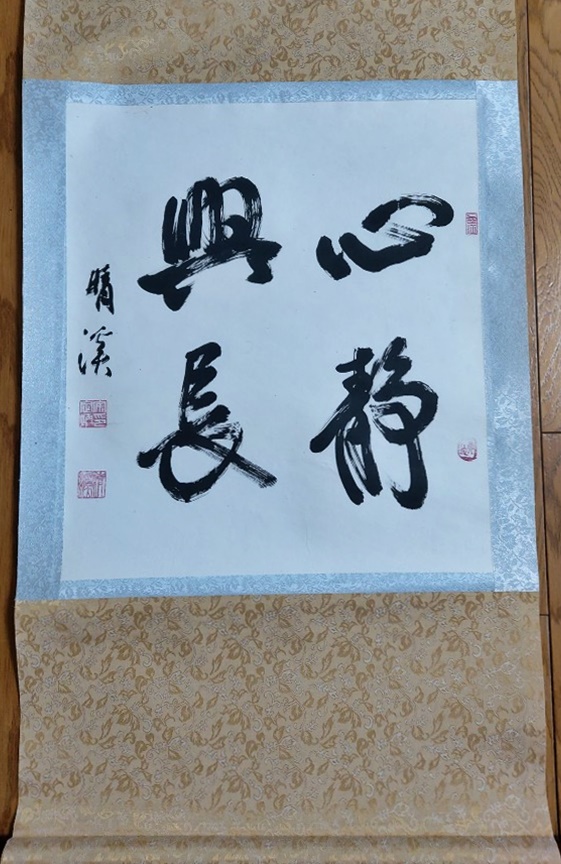 心静
興長
晴溪